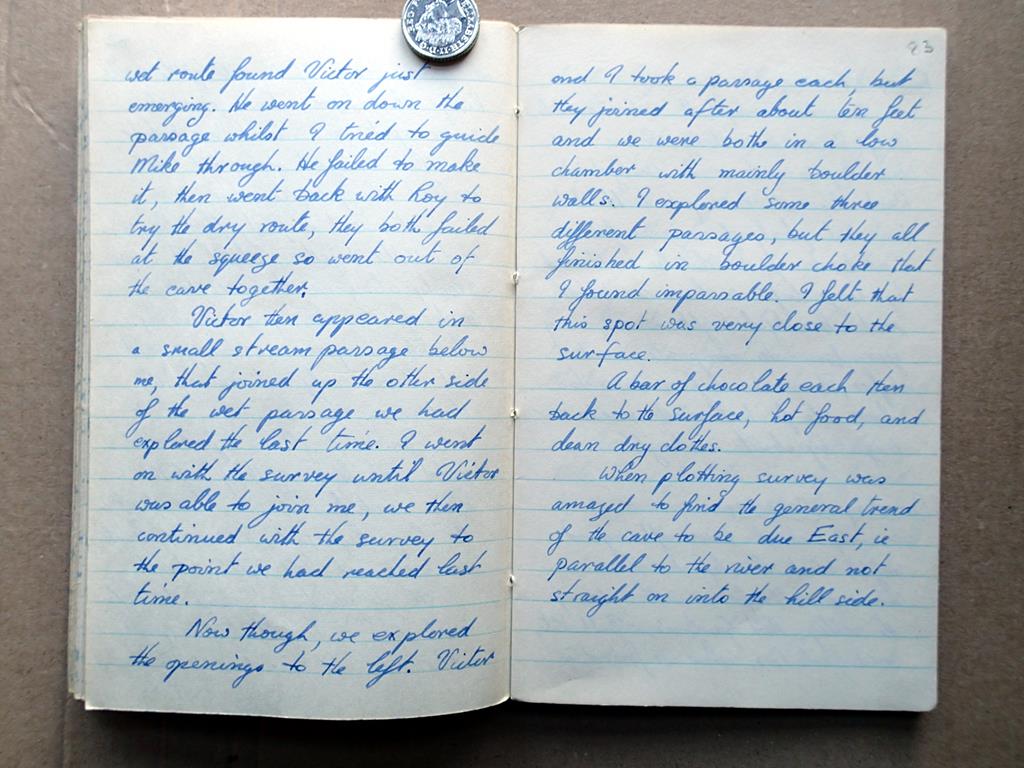 wet route found Victor just
emerging. He went on down the
passage whilst I tried to guide
Mike through. He failed to make
it, then went back with Roy to
try the dry route, they both failed
at the squeeze so went out of
the cave together.
Victor then appeared in
a small stream passage below
me, that joined up the other side
of the wet passage we had
explored the last time. I went
on with the survey until Victor
was able to join me, we then
continued with the survey to
the point we had reached last
time.
Now though, we explored
the openings to the left. Victor
23
and I took a passage each, but
they joined after about ten feet
and we were both in a low
chamber with mainly boulder
walls. I explored some three
different passages, but they all
finished in boulder choke that
I found impassable. I felt that
this spot was very close to the
surface.
A bar of chocolate each then
back to the surface, hot food, and
clean dry clothes.
When plotting survey was
amazed to find the general trend
of the cave to be due East, ie
parallel to the river and not
straight on into the hill side.